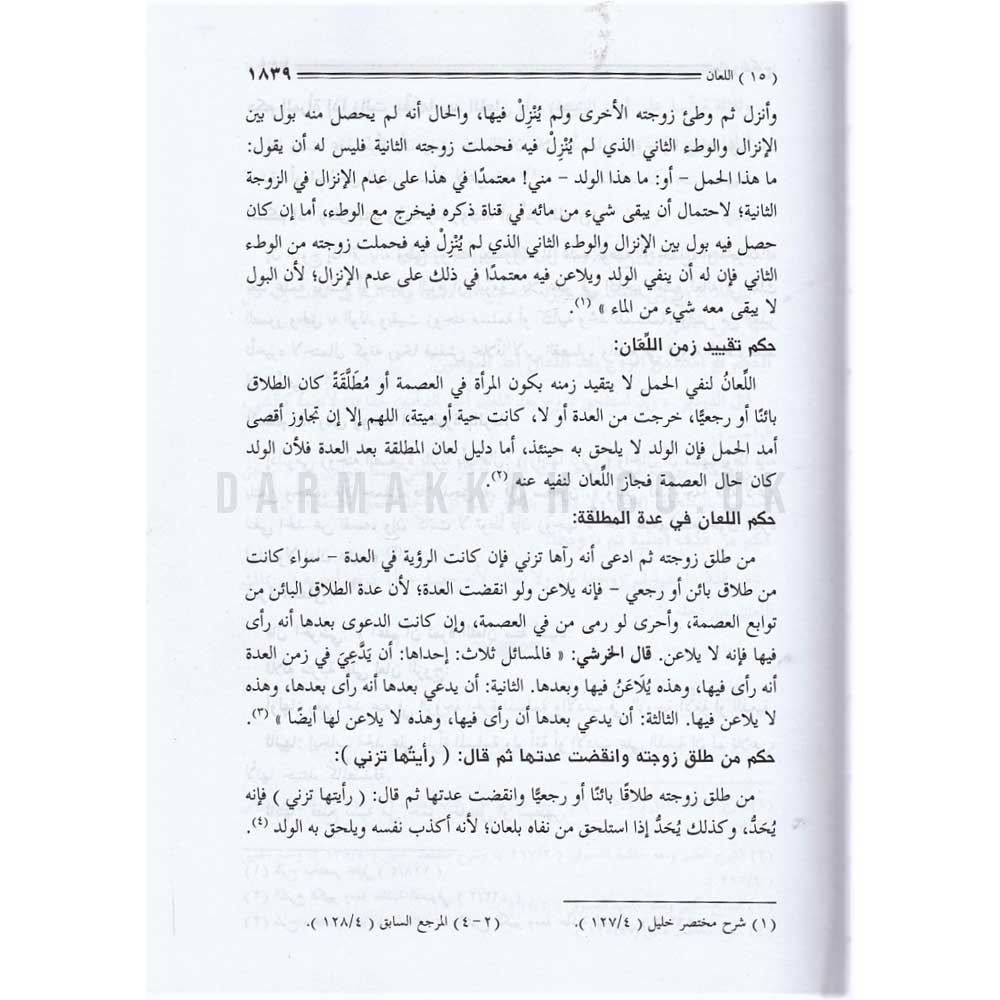 ( ١٥ ) اللعان ١٨٣٩
وأنزل ثم وطئ زوجته الأخرى ولم يُنْزِلْ فيها، والحال أنه لم يحصل منه بول بين
الإنزال والوطء الثاني الذي لم يُنْزِلْ فيه فحملت زوجته الثانية فليس له أن يقول:
ما هذا الحمل – أو: ما هذا الولد – مني! معتمدًا في هذا على عدم الإنزال في الزوجة
الثانية؛ لاحتمال أن يبقى شيء من مائه في قناة ذكره فيخرج مع الوطء، أما إن كان
حصل فيه بول بين الإنزال والوطء الثاني الذي لم يُنْزِلْ فيه فحملت زوجته من الوطء
الثاني فإن له أن ينفي الولد ويلاعن فيه معتمدًا في ذلك على عدم الإنزال؛ لأن البول
لا يبقى معه شيء من الماء » (١).
حكم تقييد زمن اللِّعَان:
اللِّعانُ لنفي الحمل لا يتقيد زمنه بكون المرأة في العصمة أو مُطَلَّقَةً كان الطلاق
بائنًا أو رجعيًّا، خرجت من العدة أو لا، كانت حية أو ميتة، اللهم إلا إن تجاوز أقصى
أمد الحمل فإن الولد لا يلحق به حينئذ، أما دليل لعان المطلقة بعد العدة فلأن الولد
كان حال العصمة فجاز اللِّعان لنفيه عنه (٢).
DARMAKKAH.CO.UK
حكم اللعان في عدة المطلقة:
من طلق زوجته ثم ادعى أنه رآها تزني فإن كانت الرؤية في العدة – سواء كانت
من طلاق بائن أو رجعي – فإنه يلاعن ولو انقضت العدة؛ لأن عدة الطلاق البائن من
توابع العصمة، وأحرى لو رمى من في العصمة، وإن كانت الدعوى بعدها أنه رأى
فيها فإنه لا يلاعن. قال الخرشي: « فالمسائل ثلاث: إحداها: أن يَدَّعِيَ في زمن العدة
أنه رأى فيها، وهذه يُلَاعَنُ فيها وبعدها. الثانية: أن يدعي بعدها أنه رأى بعدها، وهذه
لا يلاعن فيها. الثالثة: أن يدعي بعدها أن رأى فيها، وهذه لا يلاعن لها أيضًا » (٣).
حكم من طلق زوجته وانقضت عدتها ثم قال: ( رأيتُها تزني ):
من طلق زوجته طلاقًا بائنًا أو رجعيًّا وانقضت عدتها ثم قال: ( رأيتها تزني ) فإنه
يُحَدُّ، وكذلك يُحَدُّ إذا استلحق من نفاه بلعان؛ لأنه أكذب نفسه ويلحق به الولد (٤).
(١) شرح مختصر خليل ( ١٢٧/٤ ). (٢-٤) المرجع السابق ( ١٢٨/٤ ).